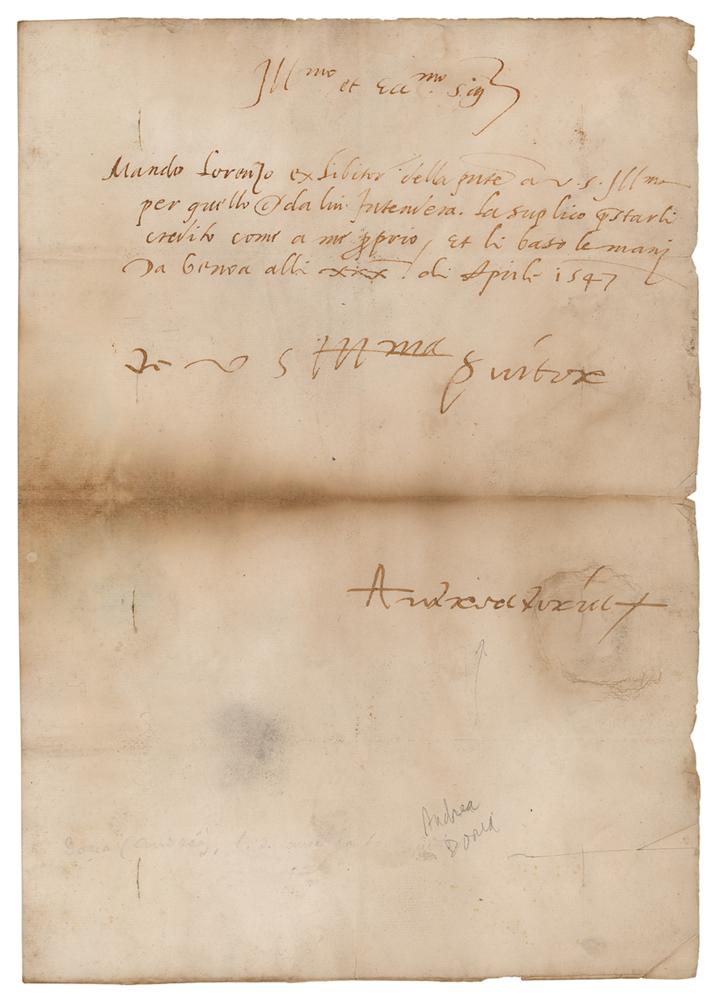 Ill^mo et Ecc^mo sig^r
Mando Lorenzo exhibitor della pnte a v. s. Ill^ma
per quello ch da lui Intendera. La suplico pstarli
credito come a me pprio, et li baso le mani
Da Genoa alli xxx di Aprile 1547
De v S Ill^ma
Servitor
Andrea doria
Andrea
Doria
Doria (Andrea),